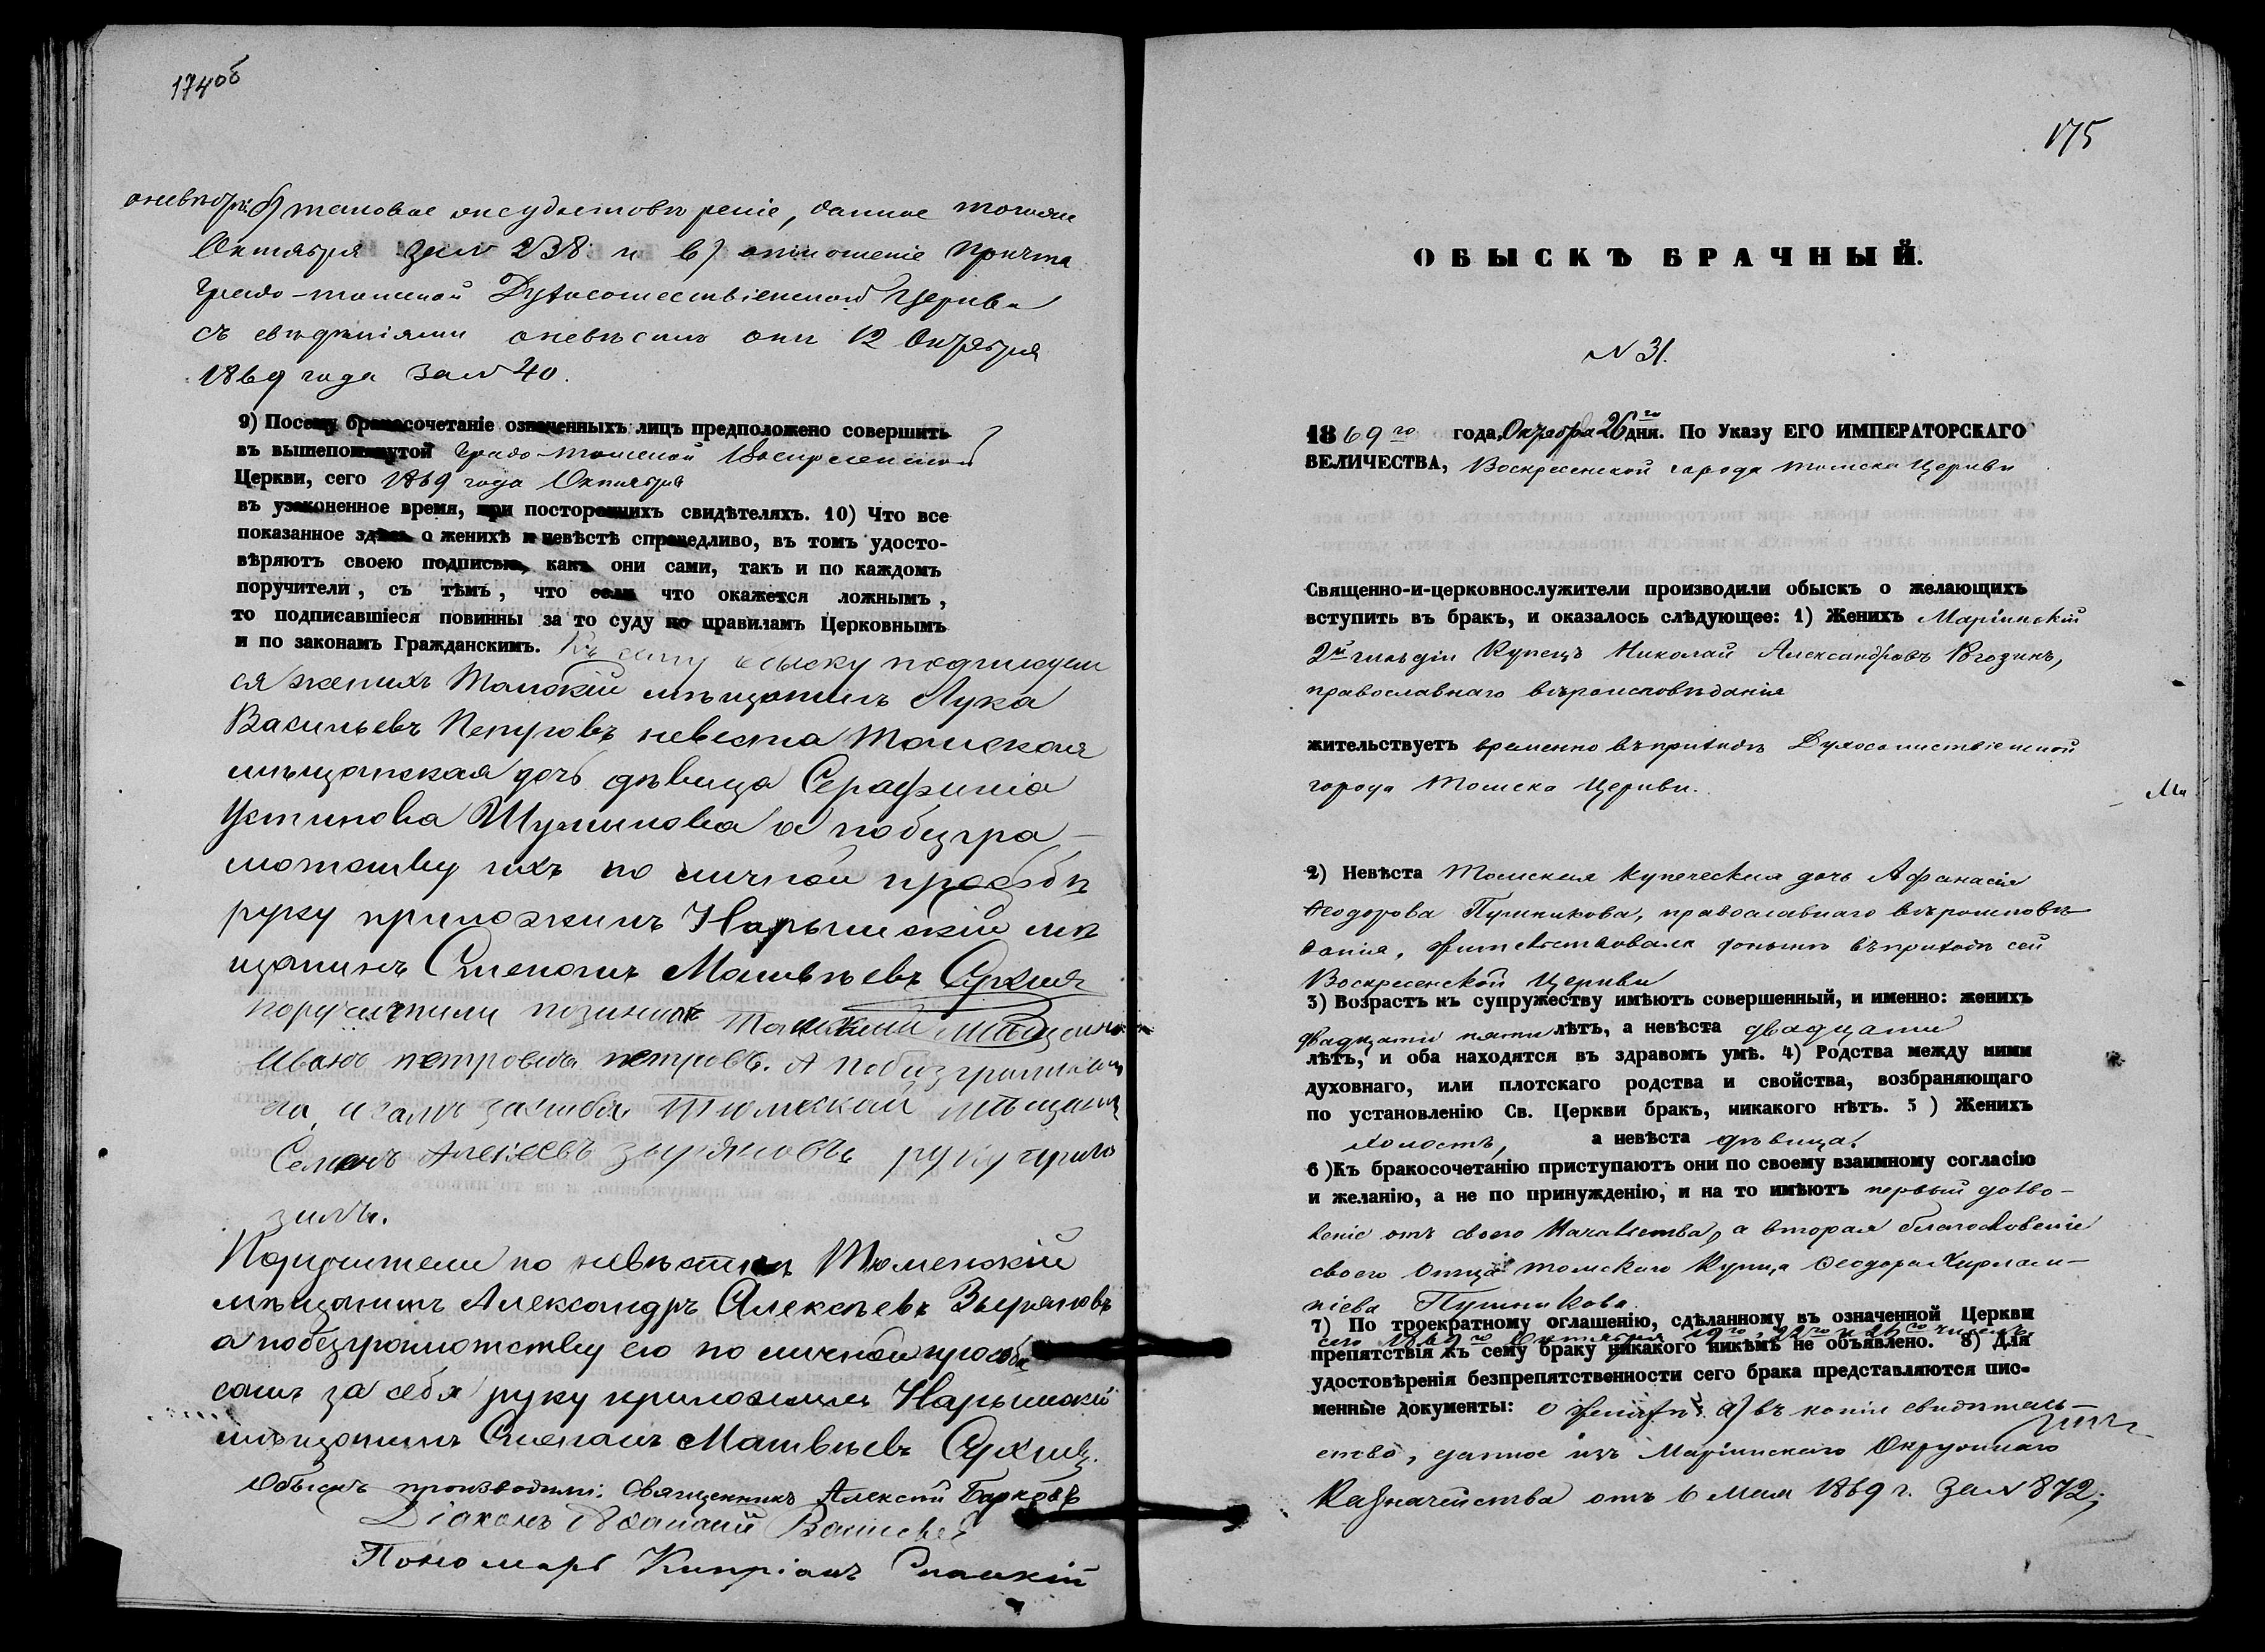 174об
а) таковое же удостовѣреніе, данное того же
Октября за № 238 и в) отношеніе причта
Градо-Томской Духосошественской Церкви
съ свѣдѣніями о невѣстѣ отъ 12 Октября
1869 года за № 40.
9) Посему бракосочетаніе означенныхъ лицъ предположено совершить
въ вышепомянутой Градо-Томской Воскресенской
Церкви, сего 1869 года Октября
въ узаконенное время, при постороннихъ свидѣтеляхъ. 10) Что все
показанное здѣсь о женихѣ и невѣстѣ справедливо, въ томъ удосто-
вѣряютъ своею подписью, какъ они сами, такъ и по каждомъ
поручители, съ тѣмъ, что если что окажется ложнымъ,
то подписавшіеся повинны за то суду по правиламъ Церковнымъ
и по законамъ Гражданскимъ. Къ сему обыску подписуем
ся женихъ Томскій мѣщанинъ Лука
Васильевъ Петровъ невеста Томская
мѣщанская дочь дѣвица Серафиміа
Устинова а по безгра-
мотству ихъ по личной прозбѣ
руку приложилъ Нарымскій мѣ
щанинъ Степанъ Матвѣевъ
поручители по женихѣ Томскій мѣщанинъ
Иванъ петровичь петровъ. А по безграмотству
его и самъ засибя Тюмскай мѣщанинъ
Семенъ Алексеевъ зыряновъ руку прило
зилъ.
Поручители по невѣсте Тюменскій
мѣщанинъ Александръ Алексѣевъ Зыряновъ
а по безграмотству его по личной просбѣ
самъ за себя руку приложилъ Нарымскій
мѣщанинъ Степанъ Матвѣевъ
Обыскъ производили: Священникъ Алексій Барковъ
Діаконъ
Пономарь Кипріанъ Спасскій
175
ОБЫСКЪ БРАЧНЫЙ.
№ 31.
1869го года, Октября 26го дня. По Указу ЕГО ИМПЕРАТОРСКАГО
ВЕЛИЧЕСТВА, Воскресенской города Томска Церкви
Священно-и-церковнослужители производили обыскъ о желающихъ
вступить въ бракъ, и оказалось слѣдующее: 1) Женихъ Маріинскій
2й гильдіи Купецъ Николай Александровъ Рогозинъ,
православнаго вѣроисповѣданія
жительствуетъ временно въ приходѣ Духосошественской
города Томска Церкви.
2) Невѣста Томская купеческая дочь Афанасія
Ѳеодорова Пушникова, православнаго вѣроисповѣ-
данія, жительствовала донынѣ въ приходѣ сей
Воскресенской Церкви
3) Возрастъ къ супружеству имѣютъ совершенный, и именно: женихъ
двадцати пяти лѣтъ, а невѣста двадцати
лѣтъ, и оба находятся въ здравомъ умѣ. 4) Родства между ними
духовнаго, или плотскаго родства и свойства, возбраняющаго
по установленію Св. Церкви бракъ, никакого нѣтъ. 5) Женихъ
холостъ, а невѣста дѣвица.
6) Къ бракосочетанію приступаютъ они по своему взаимному согласію
и желанію, а не по принужденію, и на то имѣютъ первый дозво-
леніе отъ своего Начальства, а вторая благословеніе
своего Отца Томскаго Купца Ѳеодора Харлам-
піева Пушникова
7) По троекратному оглашенію, сдѣланному въ означенной Церкви
сего 1869го Октября 19го, 22го и 26го чиселъ,
препятствія къ сему браку никакого никѣмъ не объявлено. 8) Для
удостовѣренія безпрепятственности сего брака представляются пис-
менные документы: о женихѣ: а) въ копіи свидѣтель-
ство, данное изъ Маріинскаго Окружнаго
Казначейства отъ 6 Мая 1869 г. за № 872;